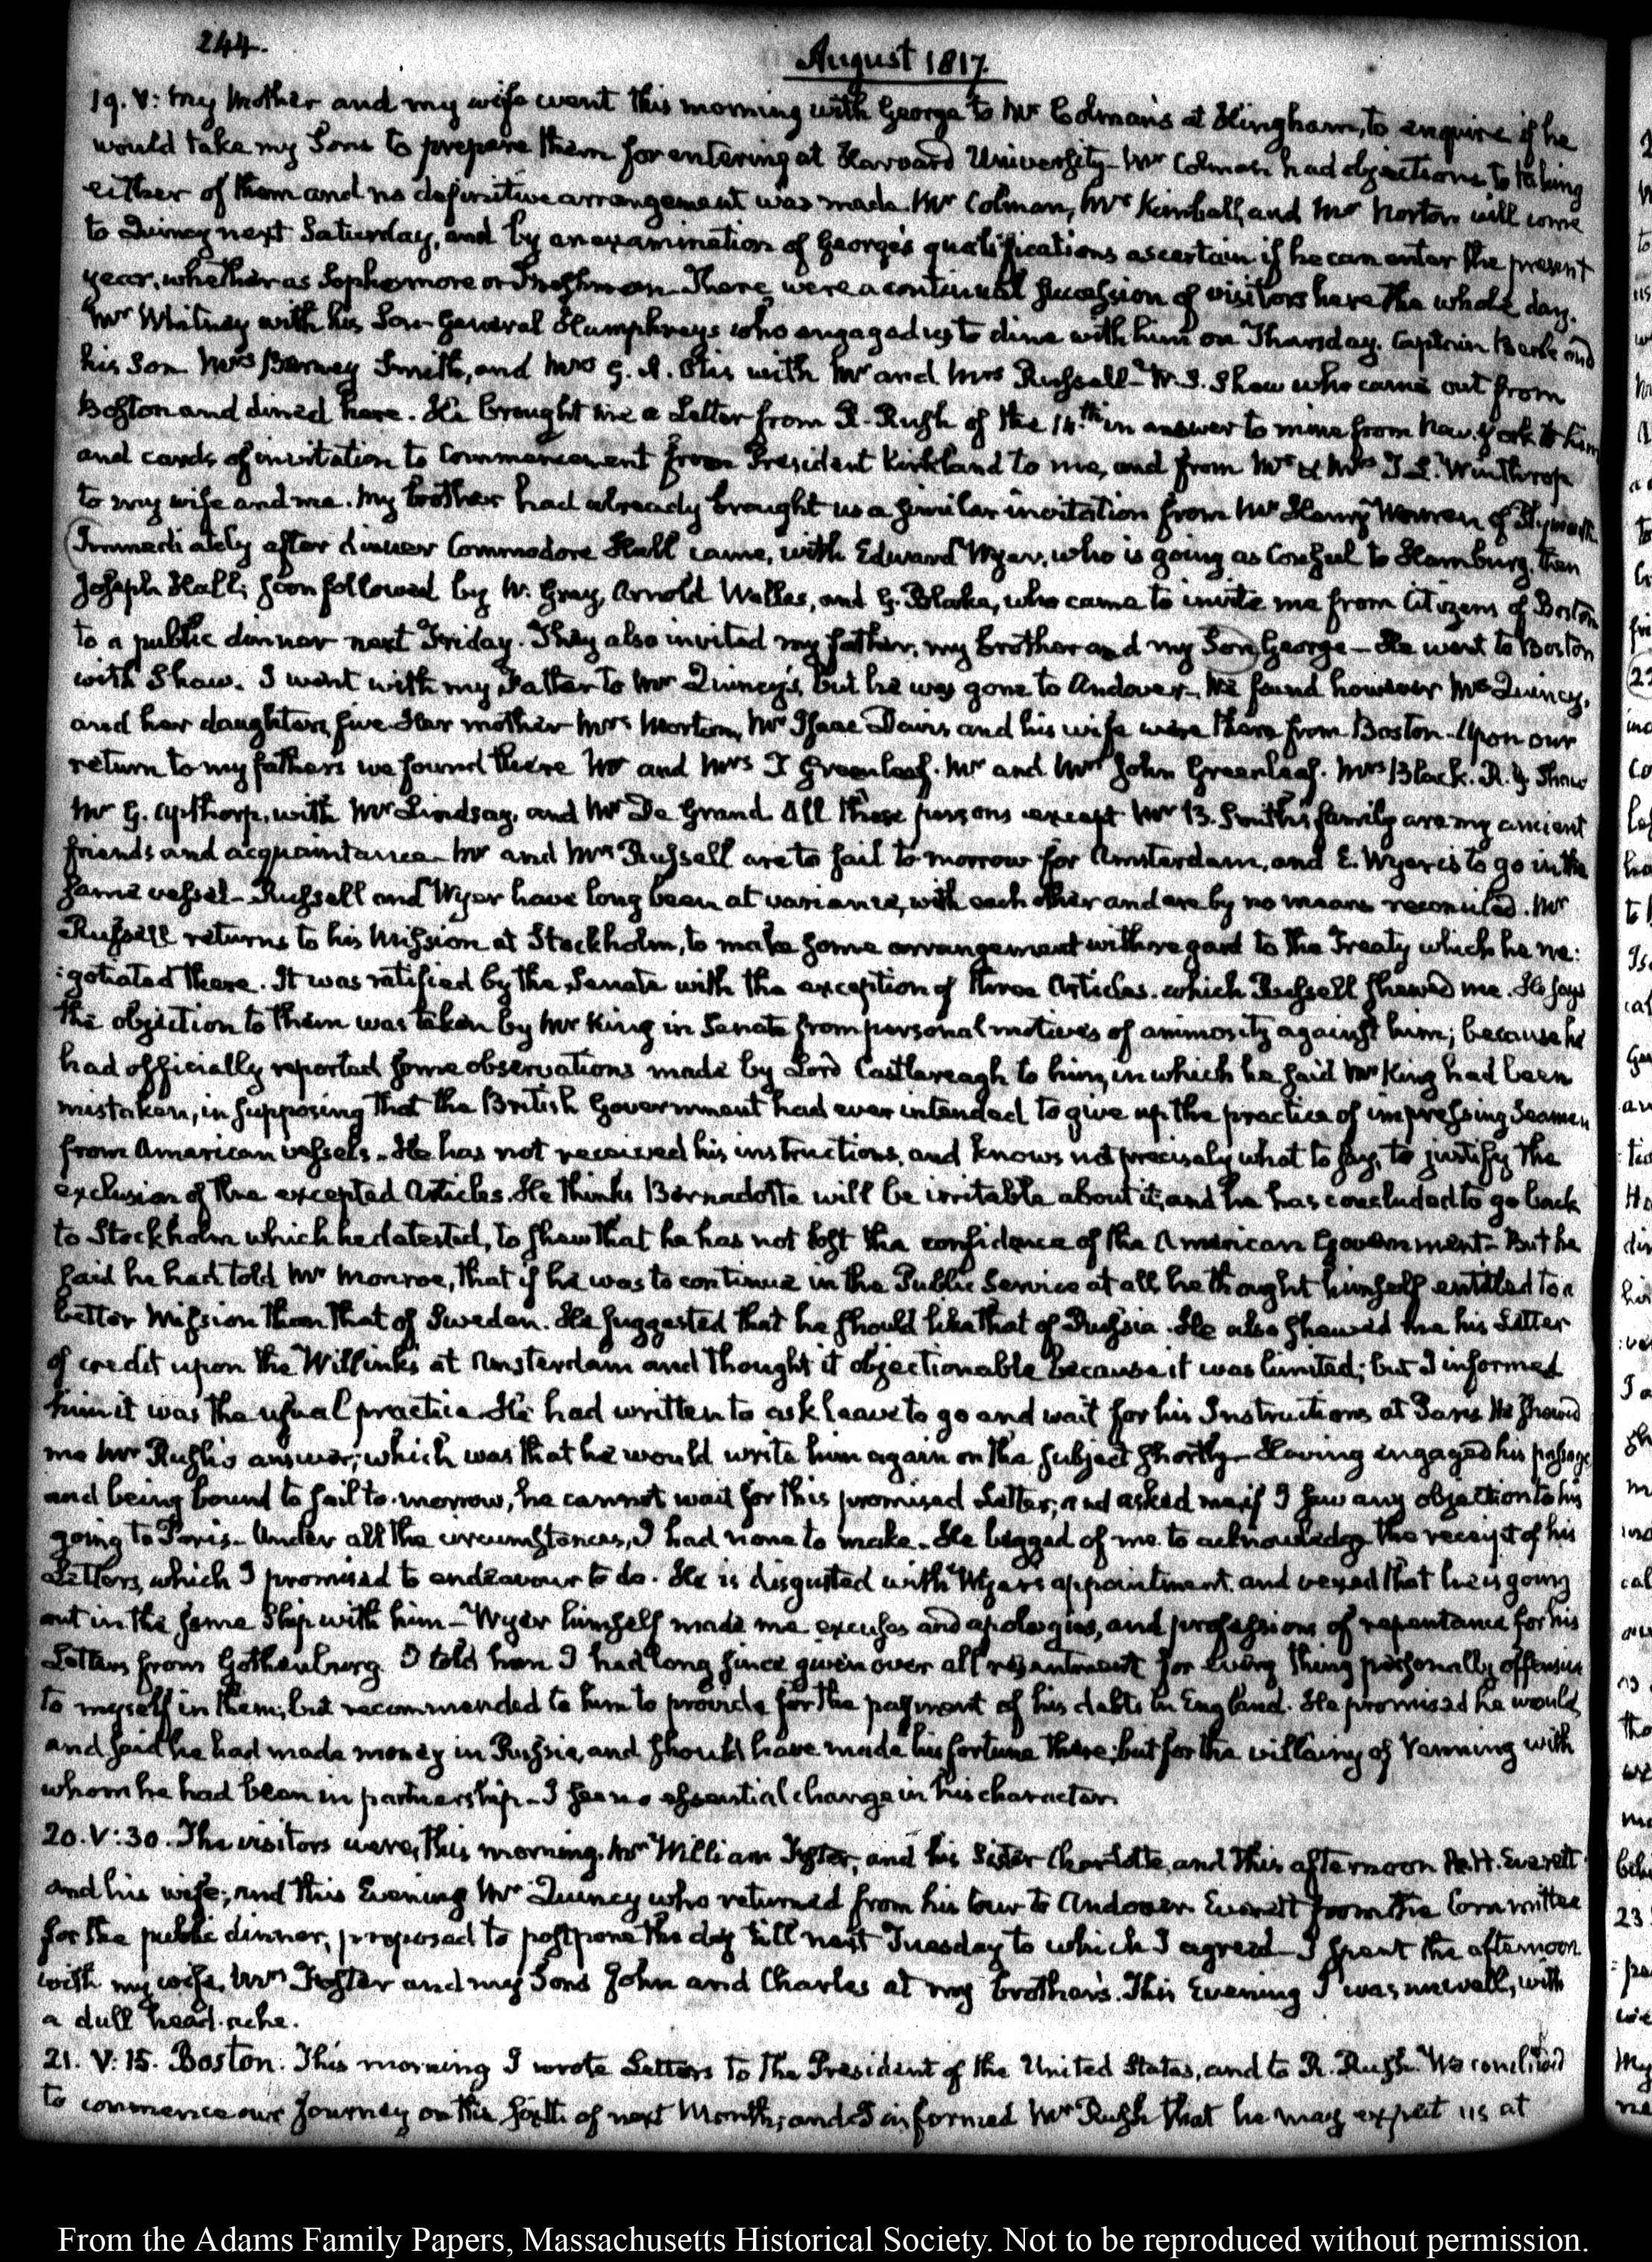 244.
August 1817.
19. V: My Mother and my wife went this morning with George to Mr Colman's at Hingham, to enquire if he
would take my Sons to prepare them for entering at Harvard University— Mr Colman had objections to taking
either of them and no definitive arrangement was made. Mr Colman, Mr Kimball, and Mr Norton will come
to Quincy next Saturday, and by an examination of George's qualifications ascertain if he can enter the present
year, whether as Sophomore or Freshman— There were a continual succession of visitors here the whole day.
Mr Whitney with his Son— General Humphreys who engaged us to dine with him on Thursday. Captain Beale and
his Son Mrs Barney Smith, and Mrs G. A. Otis with Mr and Mrs Russell— W. S. Shaw who came out from
Boston and dined here. He brought me a Letter from R. Rush of the 14th in answer to mine from New-York to him
and cards of invitation to Commencement from President Kirkland to me, and from Mr & Mrs T. L. Winthrop
to my wife and me. My brother had already brought us a similar invitation from Mr Henry Warren of Plymouth
Immediately after dinner Commodore Hull came, with Edward Wyer, who is going as Consul to Hamburg. then
Joseph Hall; soon followed by W. Gray, Arnold Welles, and G. Blake, who came to invite me from Citizens of Boston
to a public dinner next Friday. They also invited my father, my brother and my Son George— He went to Boston
with Shaw. I went with my Father to Mr Quincy's, but he was gone to Andover— We found however Mrs Quincy,
and her daughters, five Her mother Mrs Morton, Mr Isaac Davis and his wife were there from Boston— Upon our
return to my fathers we found there Mr and Mrs T Greenleaf. Mr and Mrs John Greenleaf. Mrs Black. R. G Shaw
Mr G. Apthorp, with Mr Lindsay, and Mr De Grand. All these persons except Mr B. Smith's family are my ancient
friends and acquaintance— Mr and Mrs Russell are to sail to-morrow for Amsterdam, and E. Wyer is to go in the
same vessel— Russell and Wyer have long been at variance, with each other and are by no means reconciled. Mr
Russell returns to his Mission at Stockholm, to make some arrangement with regard to the Treaty which he ne:
:gotiated there. It was ratified by the Senate with the exception of three Articles. which Russell shewed me. He says
the objection to them was taken by Mr King in Senate from personal motives of animosity against him; because he
had officially reported some observations made by Lord Castlereagh to him, in which he said Mr King had been
mistaken, in supposing that the British Government had ever intended to give up the practice of impressing Seamen
from American vessels— He has not received his instructions, and knows not precisely what to say, to justify the
exclusion of the excepted Articles. He thinks Bernadotte will be irritable about it; and he has concluded to go back
to Stockholm which he detested, to shew that he has not lost the confidence of the American Government— But he
said he had told Mr Monroe, that if he was to continue in the Public Service at all he thought himself entitled to a
better Mission than that of Sweden. He suggested that he should like that of Russia. He also shewed me his Letter
of credit upon the Willinks at Amsterdam and thought it objectionable because it was limited; but I informed
him it was the usual practice. He had written to ask leave to go and wait for his Instructions at Paris He shewed
me Mr Rush's answer; which was that he would write him again on the subject shortly— Having engaged his passage
and being bound to sail to-morrow, he cannot wait for this promised Letter; and asked me if I saw any objection to his
going to Paris— Under all the circumstances, I had none to make. He begged of me to acknowledge the receipt of his
Letters, which I promised to endeavour to do. He is disgusted with Wyer's appointment, and vexed that he is going
out in the same Ship with him— Wyer himself made me excuses and apologies, and professions of repentance for his
Letters from Gothenburg. I told him I had long since given over all resentment for every thing personally offensive
to myself in them; but recommended to him to provide for the payment of his debts in England. He promised he would,
and said he had made money in Russia, and should have made his fortune there; but for the villainy of Venning with
whom he had been in partnership— I see no essential change in his character.
20. V:30. The visitors were, this morning. Mr William Foster, and his Sister Charlotte, and this afternoon A. H. Everett
and his wife; and this Evening Mr Quincy who returned from his tour to Andover. Everett from the Committee
for the public dinner, proposed to postpone the day till next Tuesday to which I agreed— I spent the afternoon
with my wife, Mrs Foster and my Sons John and Charles at my brother's. This Evening I was unwell, with
a dull head-ache.
21. V:15. Boston. This morning I wrote Letters to the President of the United States, and to R. Rush. We conclude
to commence our Journey on the sixth of next Month; and I informed Mr Rush that he may expect us at
From the Adams Family Papers, Massachusetts Historical Society. Not to be reproduced without permission.